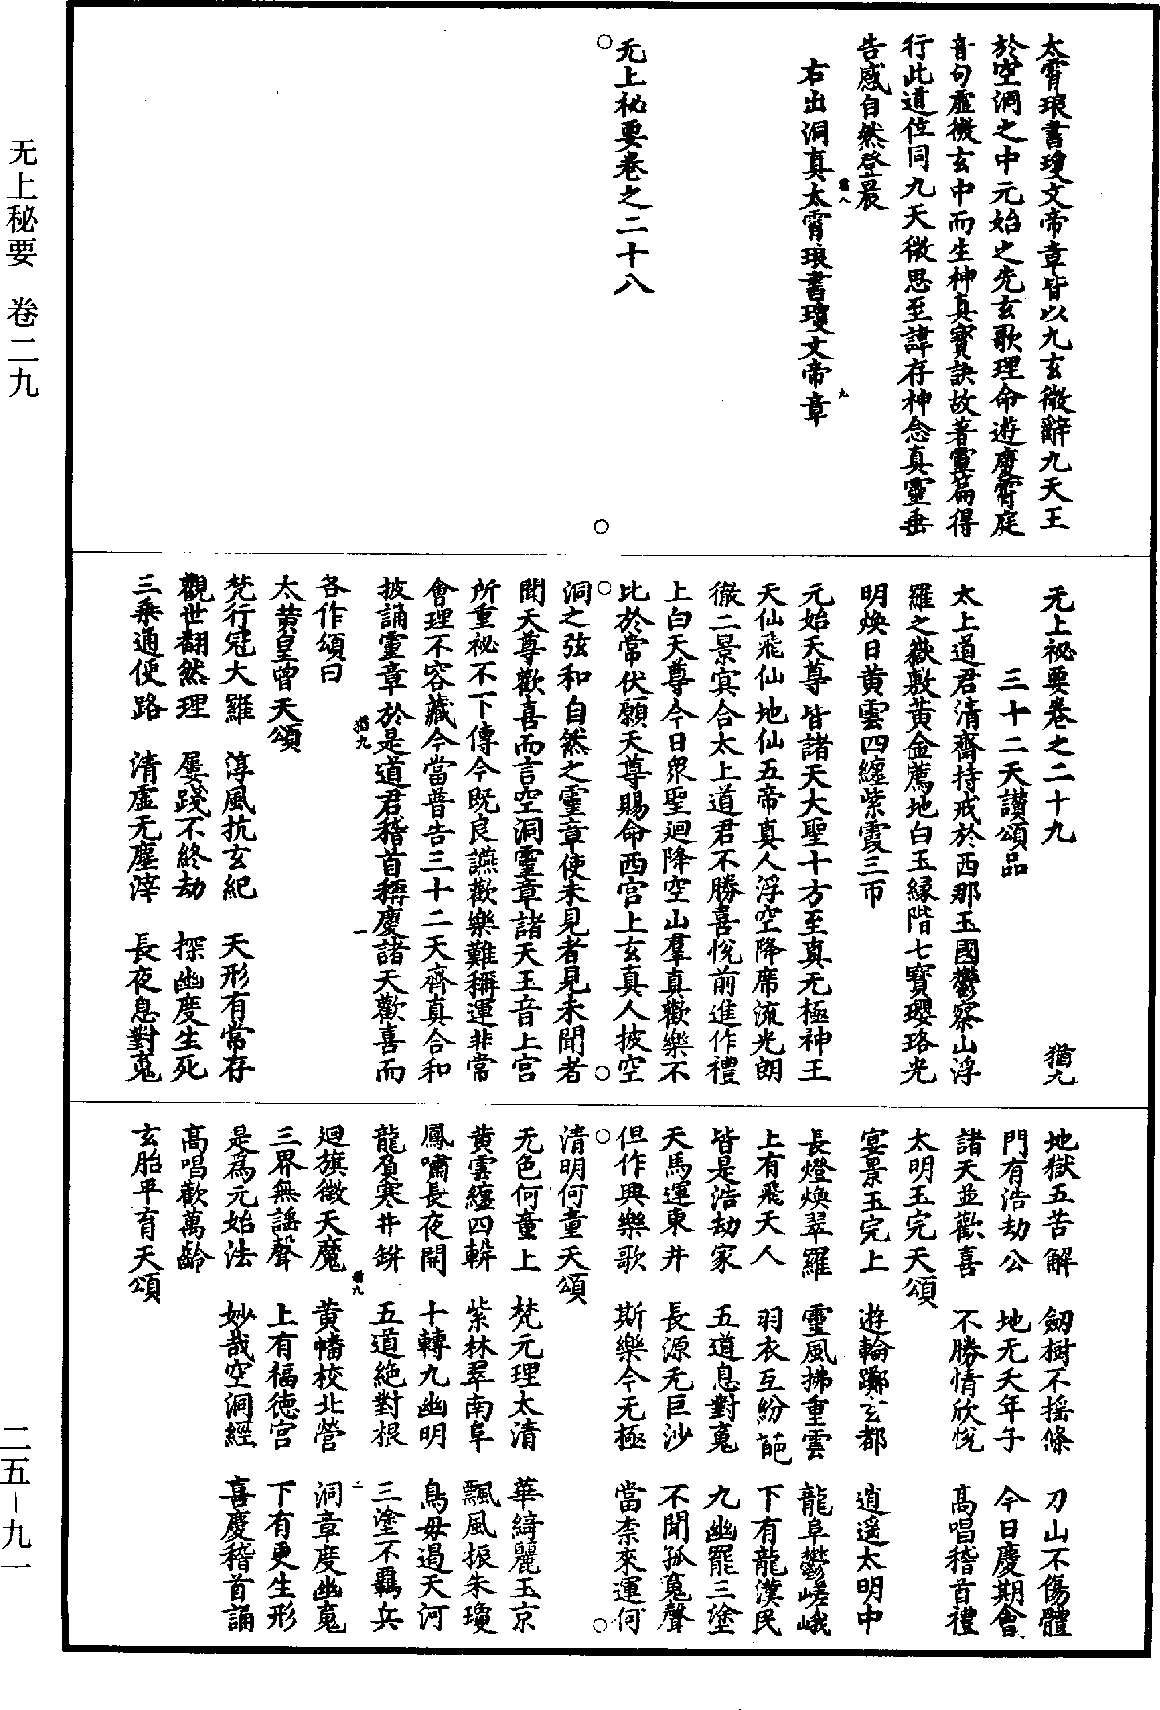 无上秘要　卷二九
太霄琅書瓊文帝章皆以九玄微辭九天王
於空洞之中元始之先玄歌理命遊慶霄庭
音句虛微玄中而生神真寳訣故著靈篇得
行此道位同九天微思至諱存神念真靈垂
告感自然登晨
猶八　九
右出洞真太霄琅書瓊文帝章
无上祕要卷之二十八
无上祕要卷之二十九　猶九
三十二天讃頌品
太上道君清齋持戒於西那玉國鬱察山浮
羅之嶽敷黄金薦地白玉緣階七寳瓔珞光
明焕日黄雲四纏紫霞三帀
元始天尊皆諸天大聖十方至真无極神王
天仙飛仙地仙五帝真人浮空降席流光朗
徹二景㝠合太上道君不勝喜悅前進作禮
上白天尊今日衆聖迴降空山羣真歡樂不
比於常伏願天尊賜命西宫上玄真人披空
洞之弦和自然之靈章使未見者見未聞者
聞天尊歡喜而言空洞靈章諸天玉音上宫
所重祕不下傳今既良讌歡樂難稱運非常
會理不容藏今當普告三十二天齊真合和
披誦靈章於是道君稽首稱慶諸天歡喜而
猶九　一
各作頌曰
太黄皇曾天頌
梵行冠大羅　淳風抗玄紀　天形有常存
觀世翻然理　屢踐不終劫　探幽度生死
三乘通便路　清虛无塵滓　長夜息對䰟
地獄五苦解　劒樹不摇條　刀山不傷體
門有浩劫公　地无夭年子　今日慶期會
諸天並歡喜　不勝情欣悅　高唱稽首禮
太明玉完天頌
宴景玉完上　遊輪躑玄都　逍遥太明中
長燈焕翠羅　靈風拂重雲　龍阜鬱嵯峨
上有飛天人　羽衣互紛葩　下有龍漢民
皆是浩劫家　五道息對䰟　九幽罷三塗
天馬運東井　長源无巨沙　不聞孤䰟聲
但作興樂歌　斯樂今无極　當柰來運何
清明何童天頌
无色何童上　梵元理太清　華綺麗玉京
黄雲纏四軿　紫林翠南阜　飄風振朱瓊
鳳嘯長夜開　十轉九幽明　鳥母遏天河
龍負寒井缾　五道絶對根　三塗不羈兵
猶九　二
迴旗徵天魔　黄幡校北營　洞章度幽䰟
三界無謡聲　上有福德宫　下有更生形
是爲元始法　妙哉空洞經　喜慶稽首誦
高唱歡萬齡
玄胎平育天頌
二五－九一